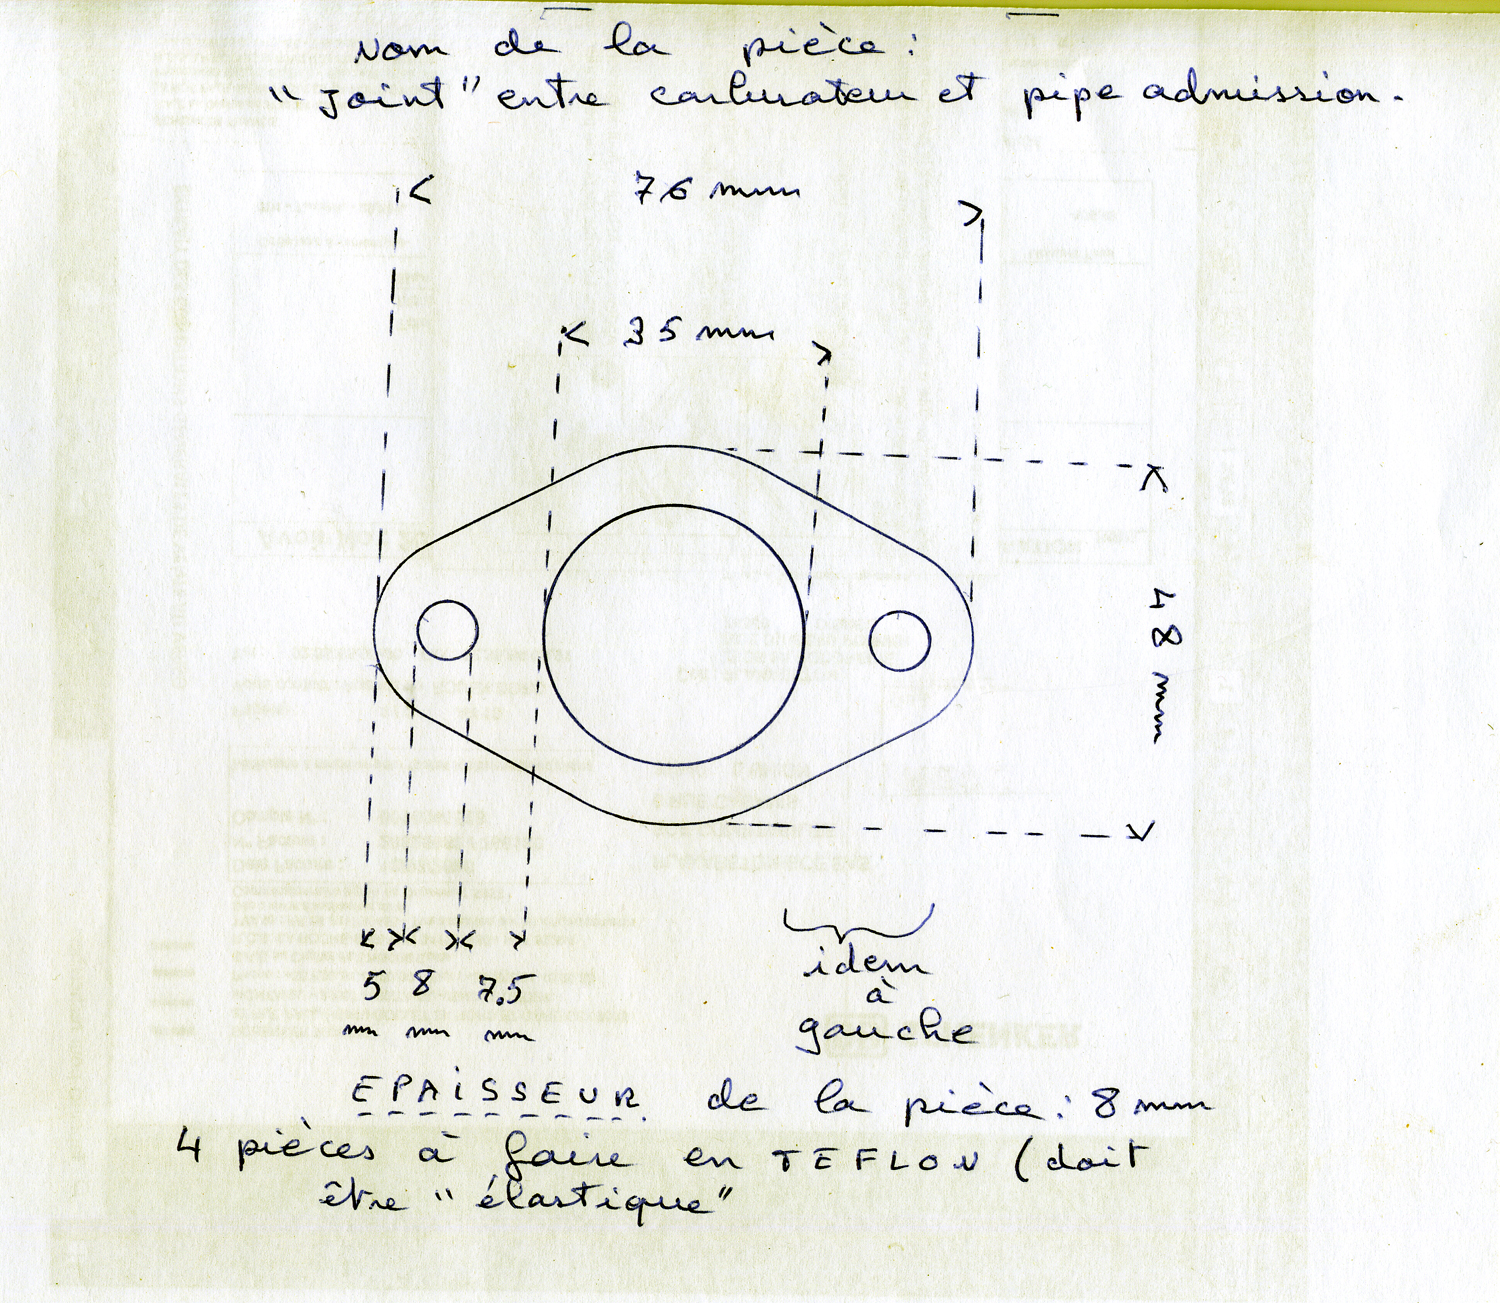 Nom de la pièce :
"Joint" entre carburateur et pipe admission.
76 mm
35 mm
48 mm
5 8 7.5
mm mm mm
idem
à
gauche
EPAISSEUR de la pièce : 8 mm
4 pièces à faire en TEFLON (doit
être "élastique"